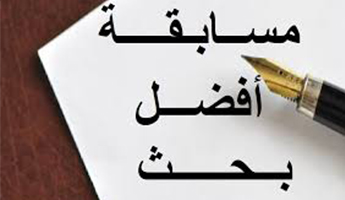 مسابقة
أفضل
بحث